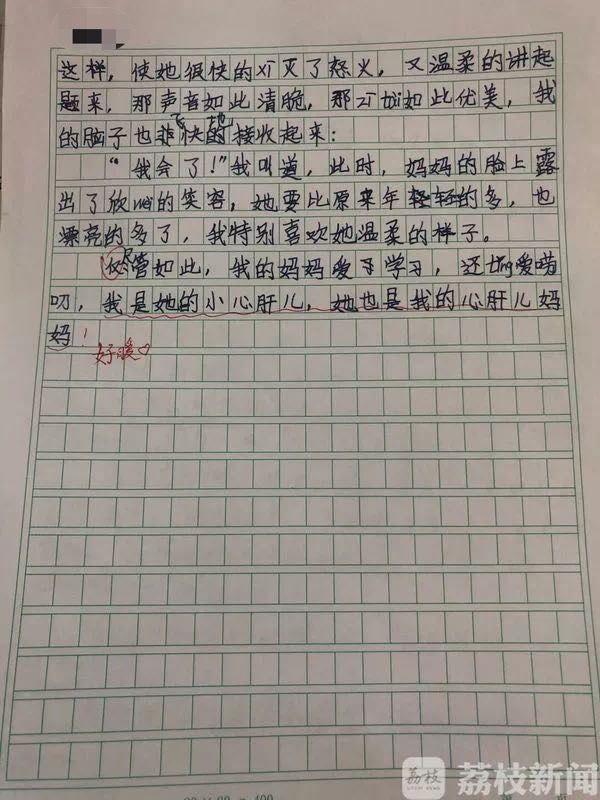 这样，使她很快的xī灭了怒火，又温柔的讲起
题来，那声音如此清脆，那zī tài如此优美，我
的脑子也飞快地接收起来：
“我会了！”我叫道，此时，妈妈的脸上露
出了欣wèi的笑容，她要比原来年轻的多，也
漂亮的多了，我特别喜欢她温柔的样子。
尽管如此，我的妈妈爱学习，还tǐng爱唠
叨，我是她的小心肝儿，她也是我的心肝儿妈
妈！
好暖♡
荔枝
荔枝新闻